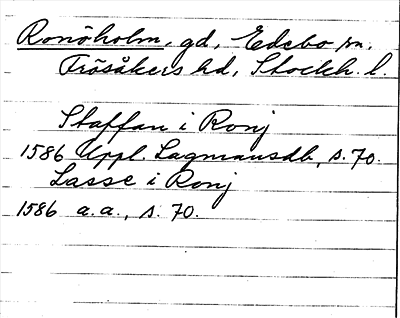 Ronöholm, gd, Edebo sn.
Frösåkers hd, Stockh. l.
Staffan i Ronj
1586 Uppl. Lagmansdb, s. 70.
Lasse i Ronj
1586 a.a., s. 70.